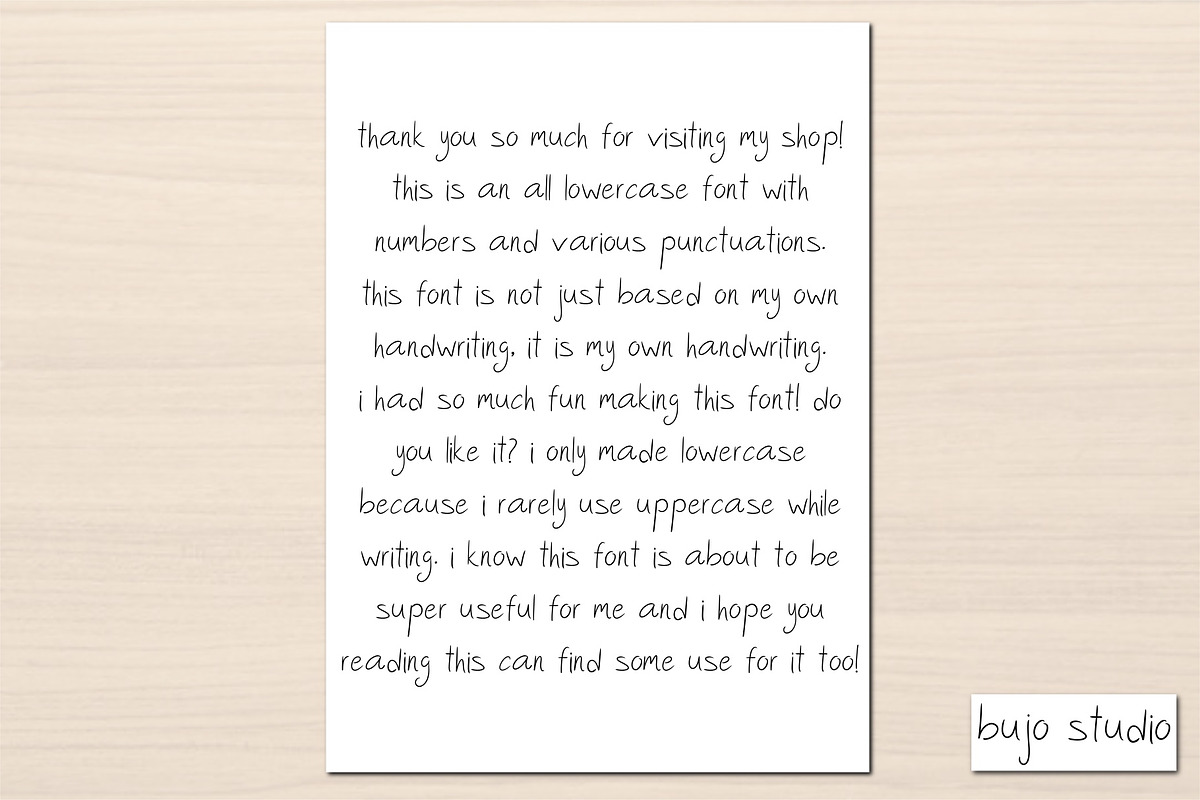 thank you so much for visiting my shop!
this is an all lowercase font with
numbers and various punctuations.
this font is not just based on my own
handwriting, it is my own handwriting.
i had so much fun making this font! do
you like it? i only made lowercase
because i rarely use uppercase while
writing. i know this font is about to be
super useful for me and i hope you
reading this can find some use for it too!
bujo studio